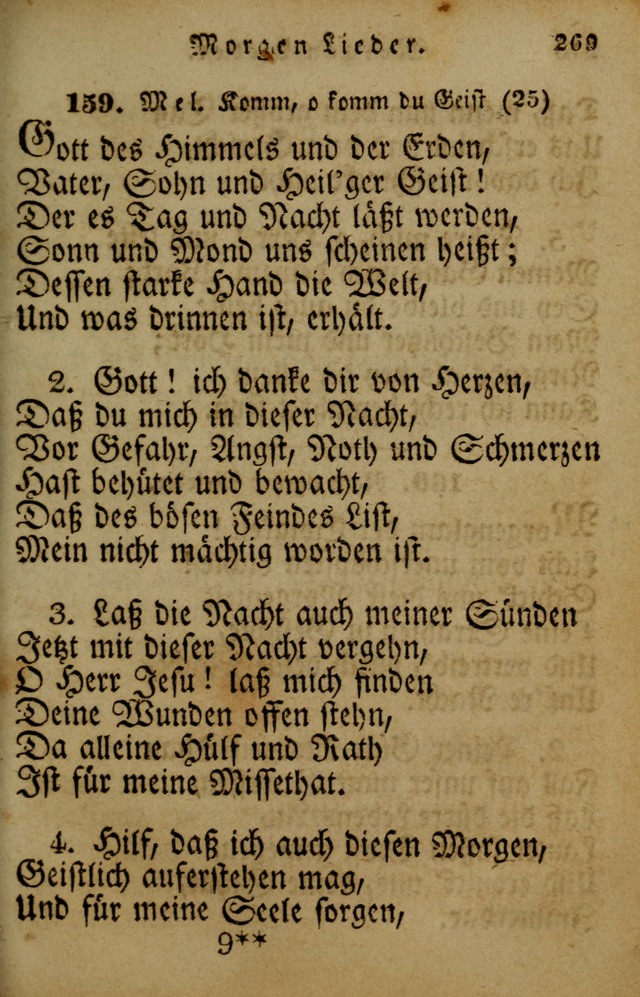 Morgen Lieder. 269
159. Mel. Komm, o komm du Geist (25)
Gott des Himmels und der Erden,
Vater, Sohn und Heil'ger Geist!
Der es Tag und Nacht läßt werden,
Sonn und Mond uns scheinen heißt;
Dessen starke Hand die Welt,
Und was drinnen ist, erhält.
2. Gott! ich danke dir von Herzen,
Daß du mich in dieser Nacht,
Vor Gefahr, Angst, Noth und Schmerzen
Hast behütet und bewacht,
Daß des bösen Feindes List,
Mein nicht mächtig worden ist.
3. Laß die Nacht auch meiner Sünden
Jetzt mit dieser Nacht vergehn,
O Herr Jesu! laß mich finden
Deine Wunden offen stehn,
Da alleine Hülf und Rath
Ist für meine Missethat.
4. Hilf, daß ich auch diesen Morgen,
Geistlich auferstehen mag,
Und für meine Seele sorgen,
9**